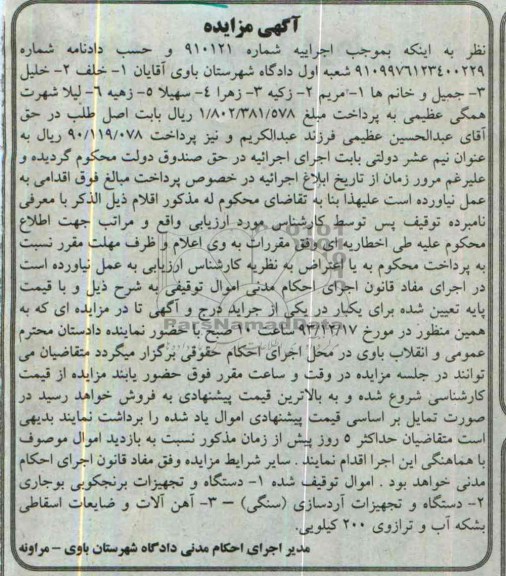 آگهی مزایده
نظر به اینکه بموجب اجراییه شماره ۹۱۰۱۲۱ و حسب دادنامه شماره
۹۱۰۹۹۷۶۱۲۳۴۰۰۲۲۹ شعبه اول دادگاه شهرستان باوی آقایان ۱- خلف ۲- خلیل
۳- جمیل و خانم ها ۱- مریم ۲- زکیه ۳- زهرا ۴- سهیلا ۵- زهیه ۶- لیلا شهرت
همگی عظیمی به پرداخت مبلغ ۱/۸۰۲/۳۸۱/۵۷۸ ریال بابت اصل طلب در حق
آقای عبدالحسین عظیمی فرزند عبدالکریم و نیز پرداخت ۹۰/۱۱۹/۰۷۸ ریال به
عنوان نیم عشر دولتی بابت اجرای اجرائیه در حق صندوق دولت محکوم گردیده و
علیرغم مرور زمان از تاریخ ابلاغ اجرائیه در خصوص پرداخت مبالغ فوق اقدامی به
عمل نیاورده است علیهذا بنا به تقاضای محکوم له مذکور اقلام ذیل الذکر با معرفی
نامبرده توقیف پس توسط کارشناس مورد ارزیابی واقع و مراتب جهت اطلاع
محکوم علیه طی اخطاریه ای وفق مقررات به وی اعلام و ظرف مهلت مقرر نسبت
به پرداخت محکوم به یا اعتراض به نظریه کارشناس ارزیابی به عمل نیاورده است
در اجرای مفاد قانون اجرای احکام مدنی اموال توقیفی به شرح ذیل و با قیمت
پایه تعیین شده برای یکبار در یکی از جراید درج و آگهی تا در مزایده ای که به
همین منظور در مورخ ساعت ۱۰ صبح با حضور نماینده دادستان محترم
عمومی و انقلاب باوی در محل اجرای احکام حقوقی برگزار میگردد متقاضیان می
توانند در جلسه مزایده در وقت و ساعت مقرر فوق حضور یابند مزایده از قیمت
کارشناسی شروع شده و به بالاترین قیمت پیشنهادی به فروش خواهد رسید در
صورت تمایل بر اساسی قیمت پیشنهادی اموال یاد شده را برداشت نمایند بدیهی
است متقاضیان حداکثر ۵ روز پیش از زمان مذکور نسبت به بازدید اموال موصوف
با هماهنگی این اجرا اقدام نمایند . سایر شرایط مزایده وفق مفاد قانون اجرای احکام
مدنی خواهد بود . اموال توقیف شده ۱- دستگاه و تجهیزات برنجکوبی بوجاری
۲- دستگاه و تجهیزات آردسازی (سنگی) – ۳- آهن آلات و ضایعات اسقاطی
بشکه آب و ترازوی ۲۰۰ کیلویی.
مدیر اجرای احکام مدنی دادگاه شهرستان باوی – مراونه
ParsNamadData